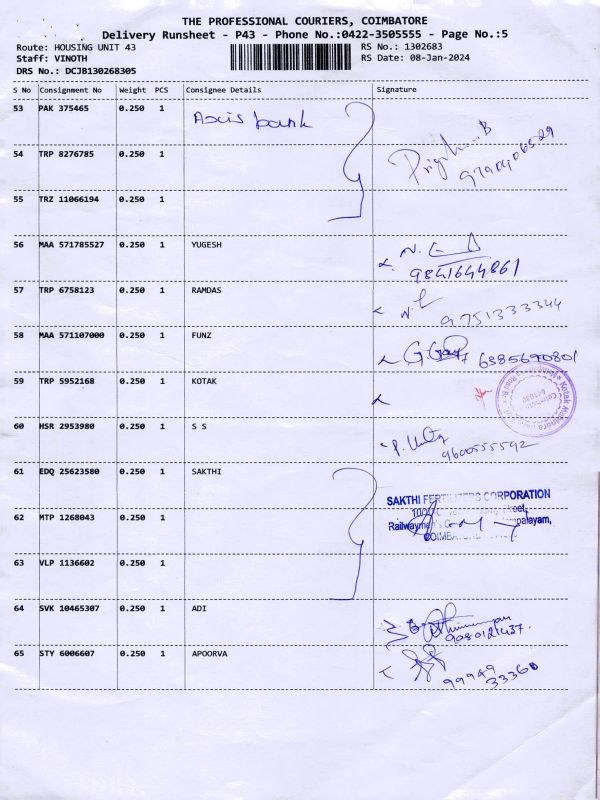 THE PROFESSIONAL COURIERS, COIMBATORE
Delivery Runsheet - P43 - Phone No.:0422-3505555 - Page No.:5
Route: HOUSING UNIT 43 RS No.: 1302683
Staff: VINOTH RS Date: 08-Jan-2024
DRS No.: DCJB130268305
S No Consignment No Weight PCS Consignee Details Signature
53 PAK 375465 0.250 1 Axis bank
54 TRP 8276785 0.250 1 9790406529
55 TRZ 11066194 0.250 1
56 MAA 571785527 0.250 1 YUGESH 9841644861
57 TRP 6758123 0.250 1 RAMDAS 9751333344
58 MAA 571107000 0.250 1 FUNZ 6385690801
59 TRP 5952168 0.250 1 KOTAK Kotak Mahindra
60 HSR 2953980 0.250 1 S S 9600555592
61 EDQ 25623580 0.250 1 SAKTHI SAKTHI FERTILIZERS CORPORATION
62 MTP 1268043 0.250 1
63 VLP 1136602 0.250 1
64 SVK 10465307 0.250 1 ADI 9080121437
65 STY 6006607 0.250 1 APOORVA 99949
33360